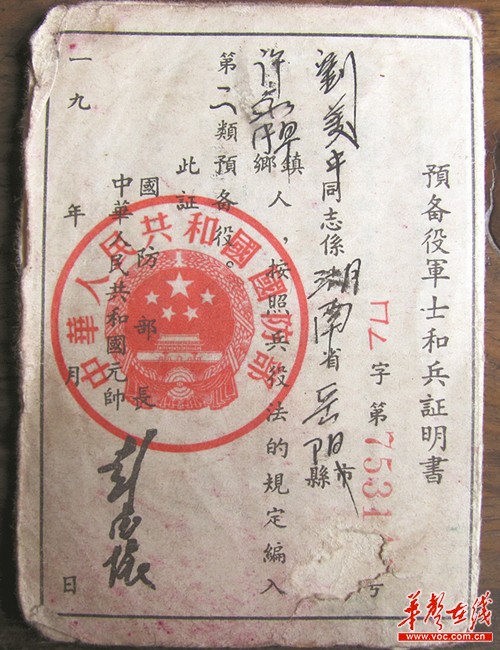 預备役軍士和兵証明書
字第7531号
劉美中同志係湖南省岳阳縣市
鄉鎮人，按照兵役法的規定編入
第二類預备役。
此証
國防部長
中華人民共和國元帥
彭德懷
一九年月日
中華人民共和國國防部
華聲在线
www.voc.com.cn